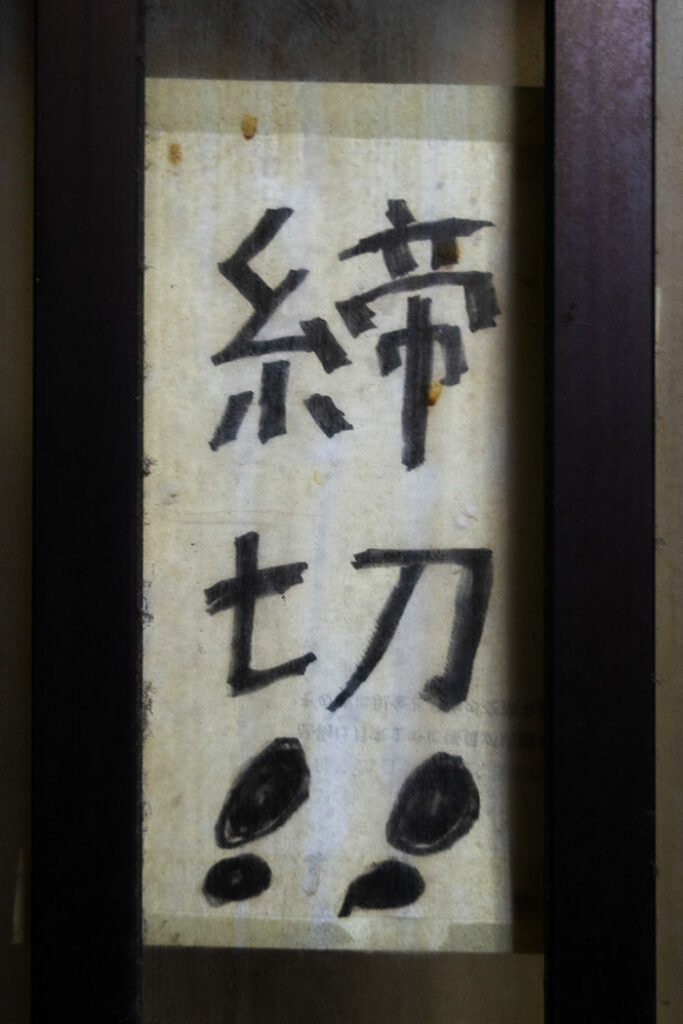 締切!!